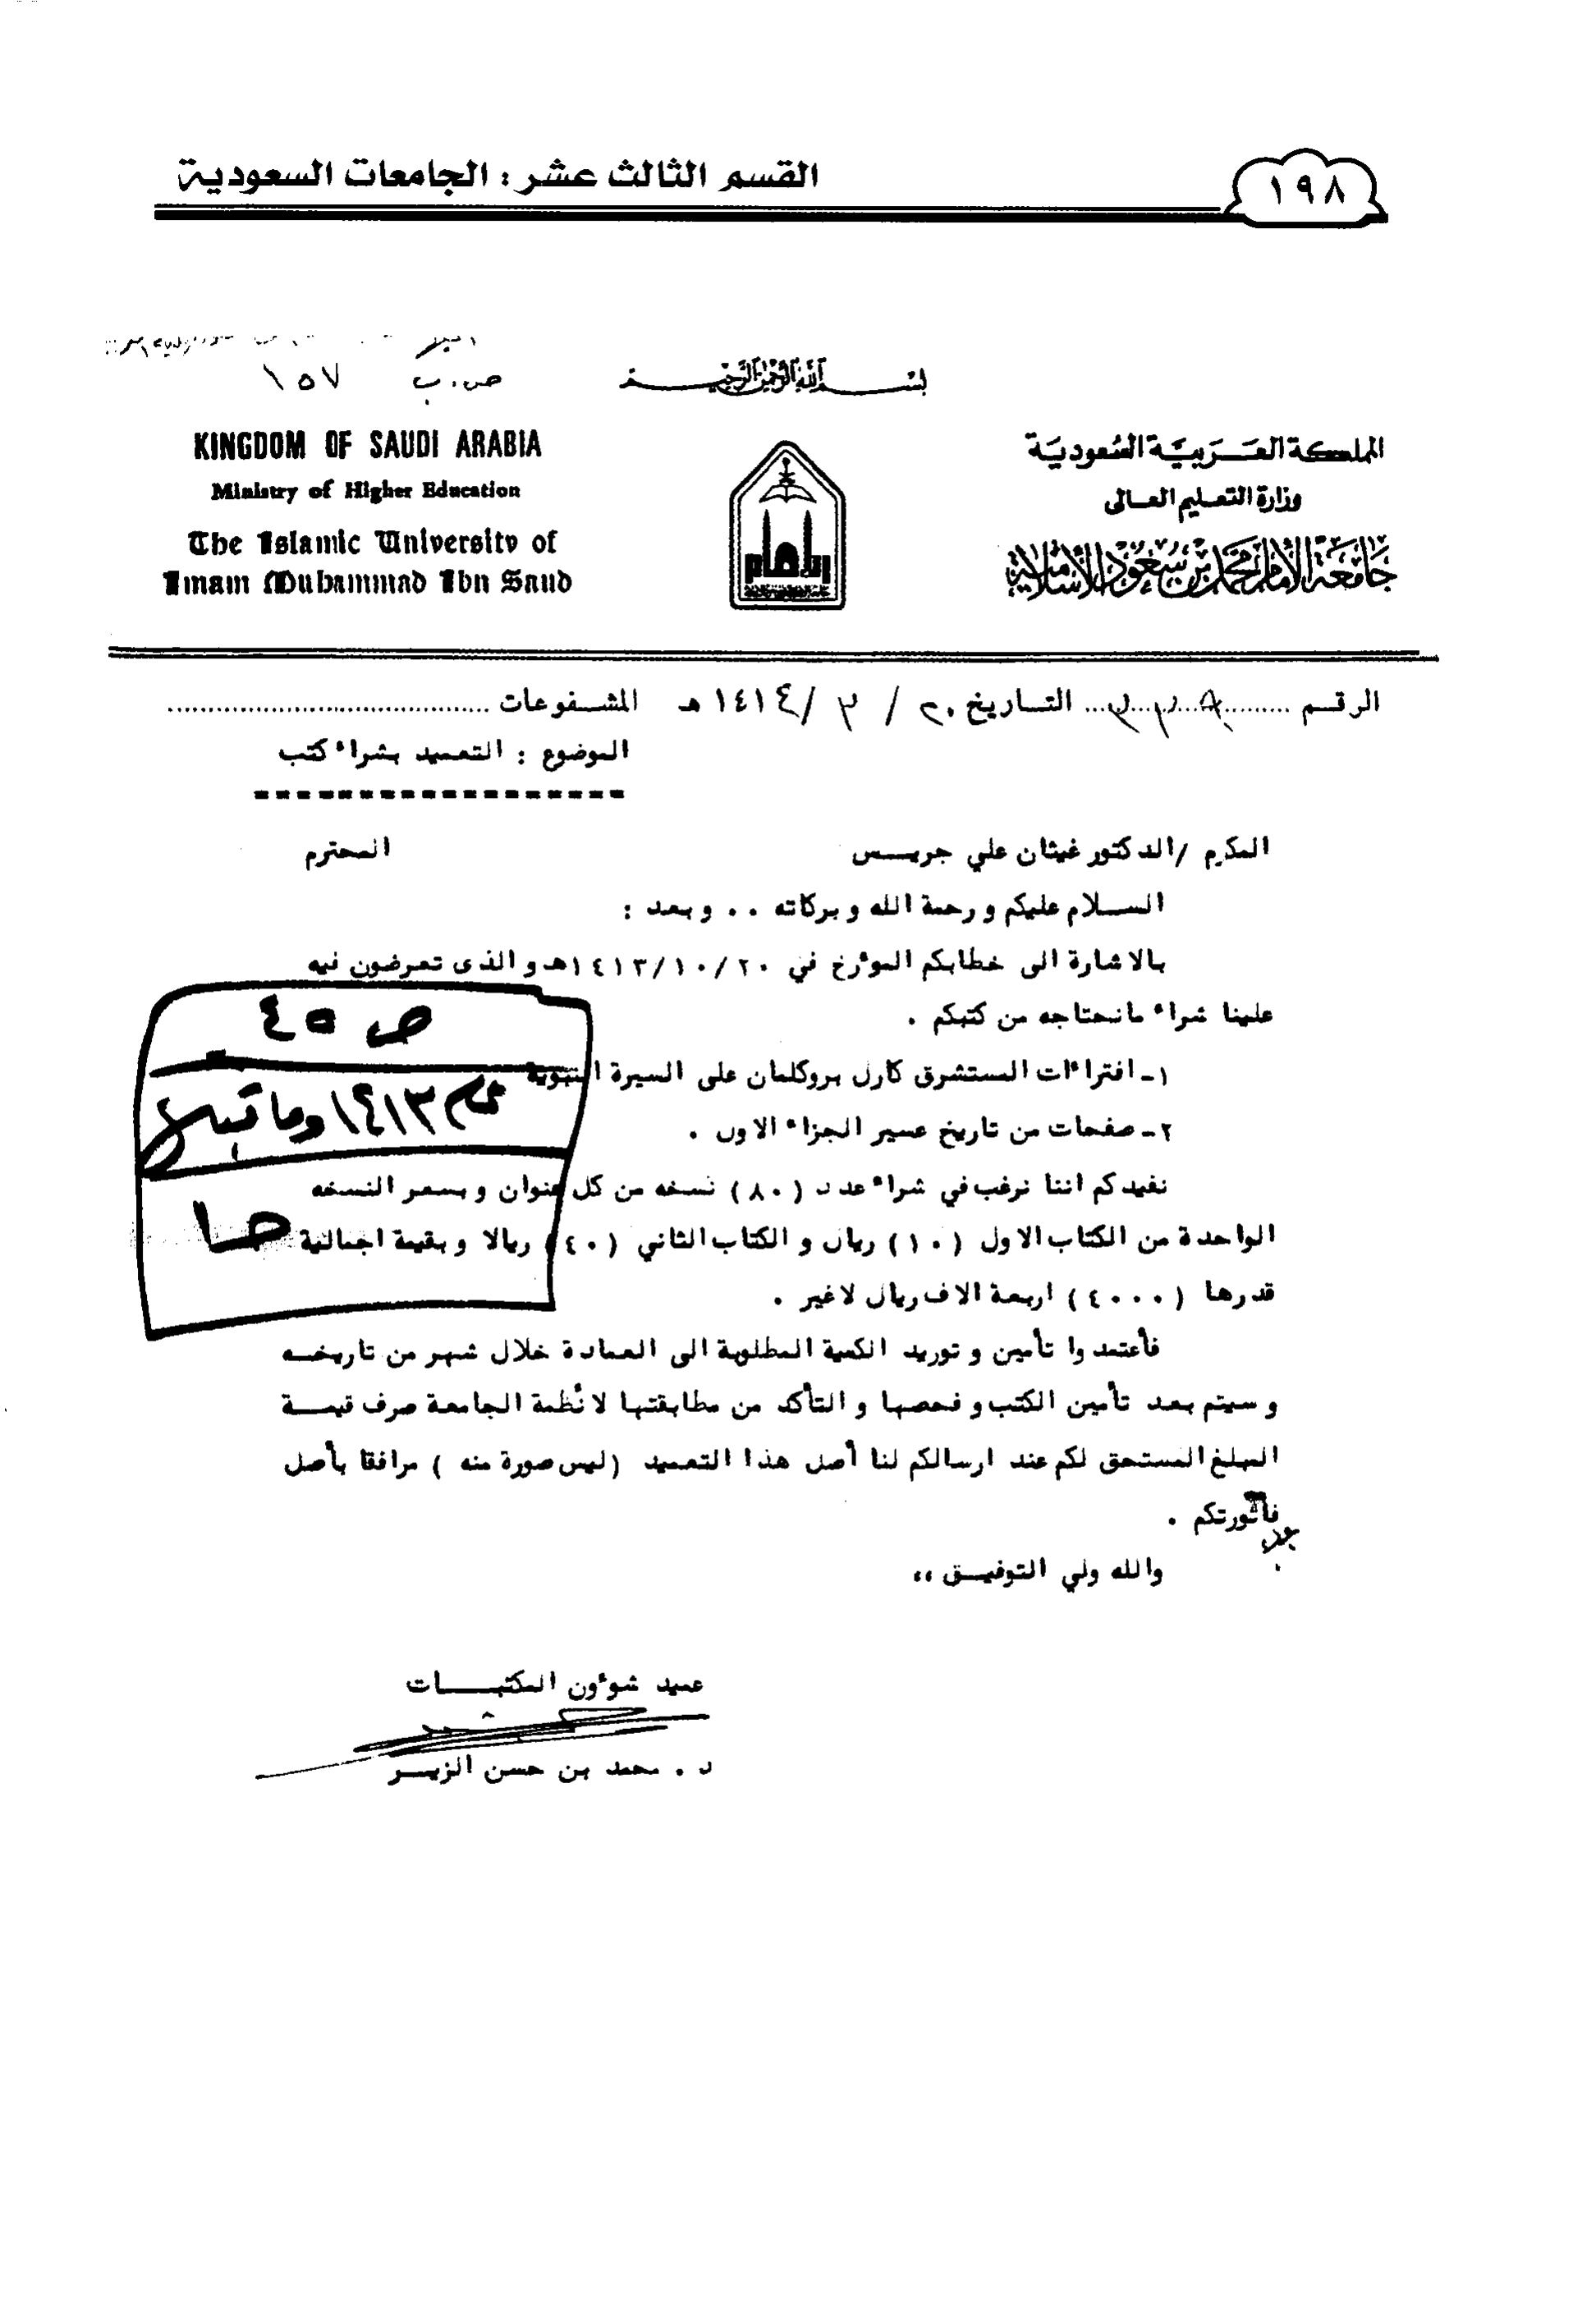 ١٩٨
القسم الثالث عشر : الجامعات السعودية
ص.ب ١٥٧
بسم الله الرحمن الرحيم
KINGDOM OF SAUDI ARABIA
Ministry of Higher Education
The Islamic University of
Imam Muhammad Ibn Saud
المملكة العربية السعودية
وزارة التعليم العالي
جامعة الإمام محمد بن سعود الإسلامية
الرقم التاريخ ٢٠ / ٣ / ١٤١٤ هـ المشفوعات
الموضوع : التعميد بشراء كتب
المكرم /الدكتور غيثان علي جريس المحترم
السلام عليكم ورحمة الله وبركاته . . وبعد :
بالاشارة الى خطابكم المؤرخ في ١٤١٣/١٠/٢٠هـ والذى تعرضون فيه
علينا شراء مانحتاجه من كتبكم .
١- افتراءات المستشرق كارل بروكلمان على السيرة النبوية
٢- صفحات من تاريخ عسير الجزاء الاول .
نفيدكم اننا نرغب في شراء عدد (٨٠) نسخه من كل عنوان وبسعر النسخه
الواحدة من الكتاب الاول (١٠) ريال والكتاب الثاني (٤٠) ريالا وبقيمة اجمالية
قدرها (٤٠٠٠) اربعة الاف ريال لاغير .
فأعتمدوا تأمين وتوريد الكمية المطلوبة الى العمادة خلال شهر من تاريخه
وسيتم بعد تأمين الكتب وفحصها والتأكد من مطابقتها لأنظمة الجامعة صرف قيمة
المبلغ المستحق لكم عند ارسالكم لنا أصل هذا التعميد (ليس صورة منه ) مرافقا بأصل
فاتورتكم .
والله ولي التوفيق ،،
ص ٤٥
١٤١٣ وما قبل
عميد شؤون المكتبات
د . محمد بن حسن الزير